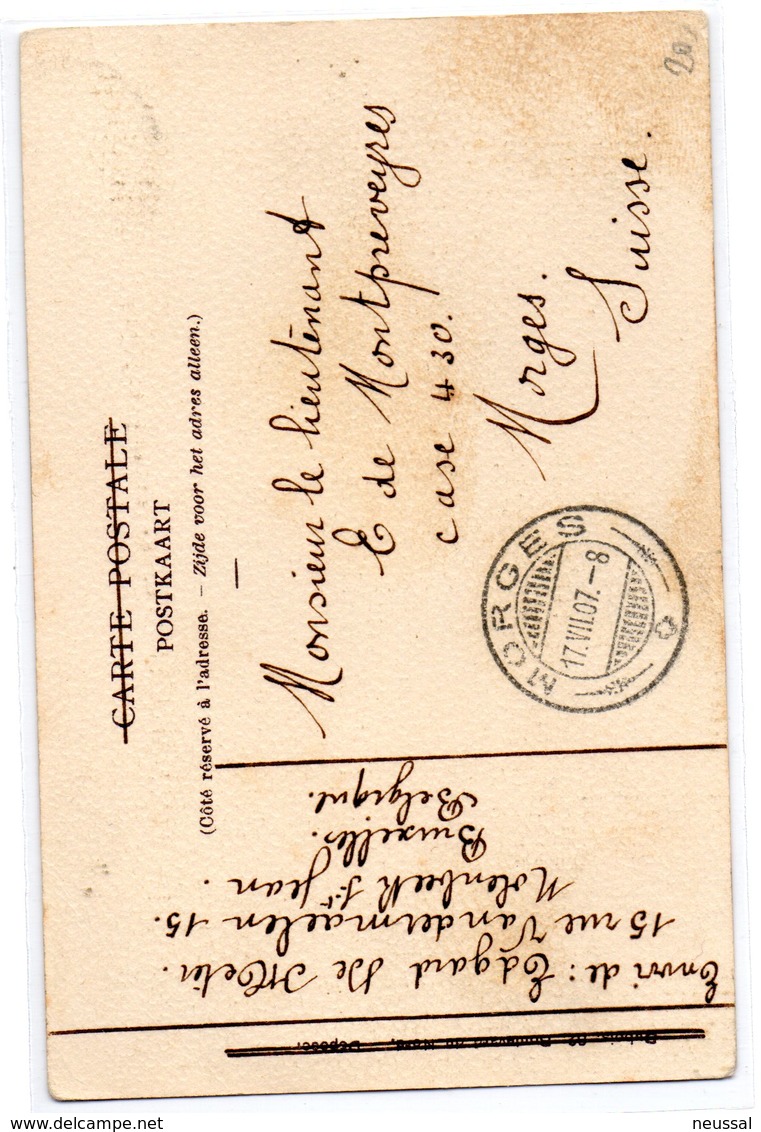 CARTE POSTALE
POSTKAART
(Côté réservé à l'adresse. – Zijde voor het adres alleen.)
Monsieur le lieutenant
E de Montpreveyres
case 430.
Morges.
Suisse.
MORGES
17.VII.07.–8
20
Envoi de : Edgard De
15 rue Vandermaelen 15.
Molenbeek St Jean.
Bruxelles.
Belgique.
82, Boulevard du Nord,
neussal